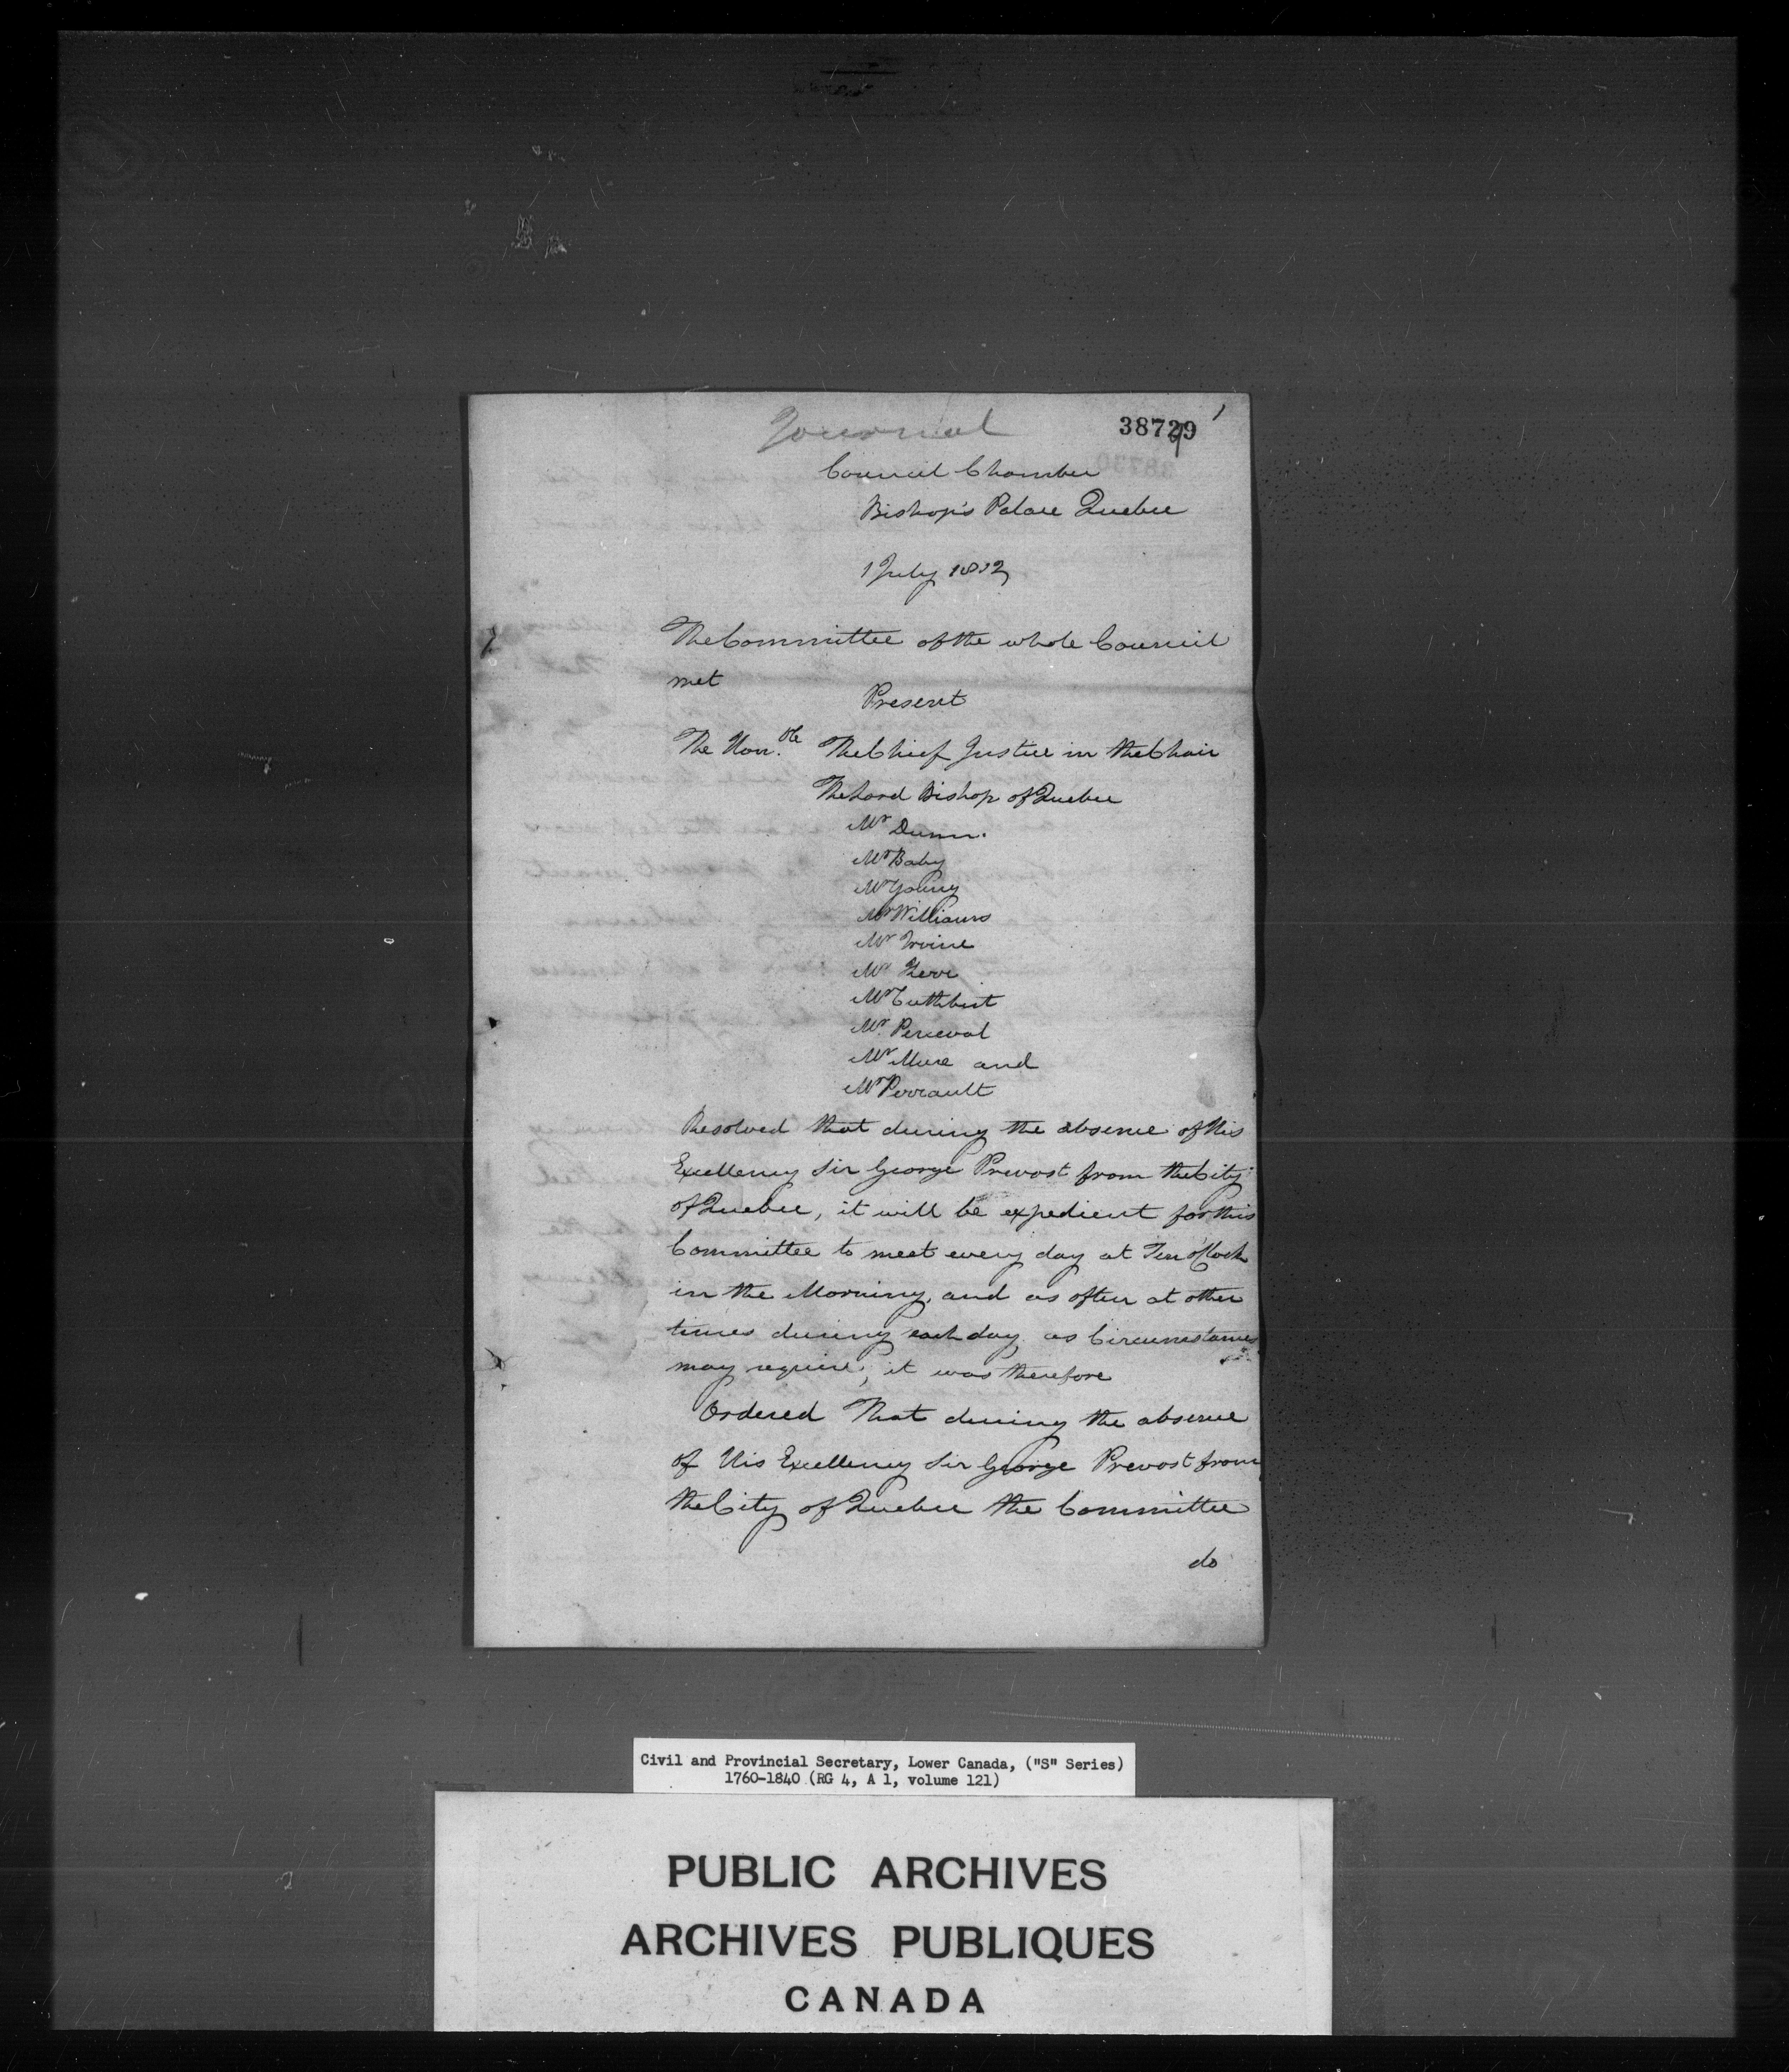 Journal
38729
Council Chamber
Bishop's Palace Quebec
1 July 1812
The Committee of the whole Council
met
Present
The Hon.ble The Chief Justice in the Chair
The Lord Bishop of Quebec
Mr Dunn.
Mr Baby
Mr Young
Mr Williams
Mr Irvine
Mr
Mr Cuthbert
Mr. Perceval
Mr Mure and
Mr Perrault
Resolved that during the absence of His
Excellency Sir George Prevost from the City
of Quebec, it will be expedient for this
Committee to meet every day at Ten o'Clock
in the Morning, and as often at other
times during each day as Circumstances
may require; it was therefore
Ordered That during the absence
of His Excellency Sir George Prevost from
the City of Quebec the Committee
do
Civil and Provincial Secretary, Lower Canada, ("S" Series)
1760-1840 (RG 4, A 1, volume 121)
PUBLIC ARCHIVES
ARCHIVES PUBLIQUES
CANADA